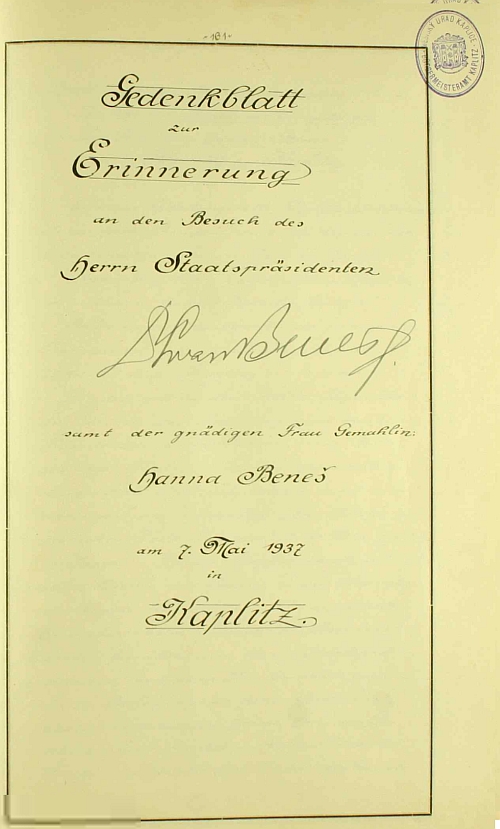 - 161 -
Gedenkblatt
zur
Erinnerung
an den Besuch des
Herrn Staatspräsidenten
Dr Edvard Beneš
samt der gnädigen Frau Gemahlin:
Hanna Beneš
am 7. Mai 1937
in
Kaplitz.
ÚŘAD KAPLICE
BÜRGERMEISTERAMT KAPLITZ